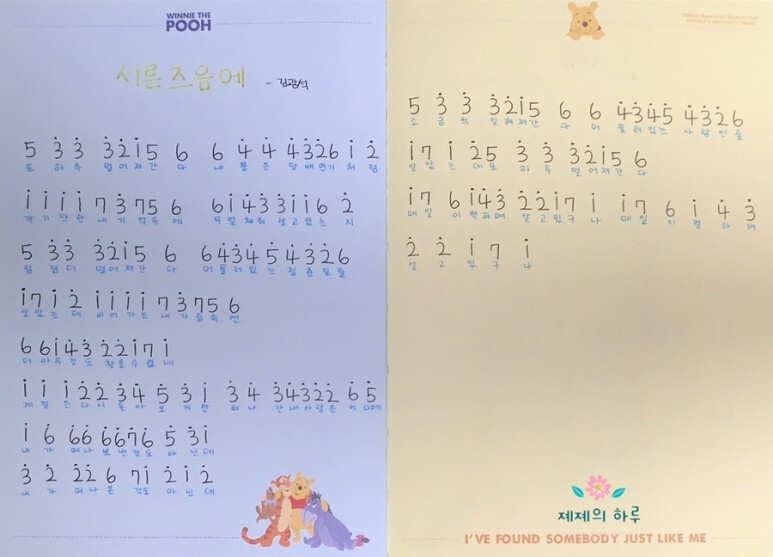 WINNIE THE
POOH
서른 즈음에 - 김광석
5 3̇ 3̇ 3̇2̇1̇5 6 6 4̇ 4̇ 4̇3̇2̇6 1̇ 2̇
또 하루 멀어져간다 내뿜은 담배연기처럼
1̇ 1̇ 1̇ 1̇ 1̇ 7 3̇ 7 5 6 6 1̇ 4̇ 3̇ 3̇ 1̇ 1̇ 6 2̇
작기만한 내 기억 속에 무얼 채워 살고있는 지
5 3̇3̇ 3̇2̇1̇5 6 6 4̇3̇4̇5̇ 4̇3̇2̇6
점점 더 멀어져간다 머물러있는 청춘인줄
1̇7 1̇ 2̇ 1̇ 1̇ 1̇ 1̇ 7 3̇ 7 5 6
알았는데 비어가는 내 가슴속엔
6 6 1̇ 4̇ 3̇ 2̇ 2̇ 1̇ 7 1̇
더 아무것도 찾을수없네
1̇ 1̇ 1̇ 2̇ 2̇ 3̇4̇ 5̇ 3̇ 1̇ 3̇ 4̇ 3̇4̇3̇2̇2̇ 6 5̇
계절은 다시 돌아오지만 떠나간 내사랑은 어디에
1̇ 6̇ 6̇6̇ 6̇6̇7̇6̇ 5̇ 3̇1̇
내가 떠나보낸것도 아닌데
3̇ 2̇ 2̇2̇ 6 7 1̇ 2̇ 1̇ 2̇
내가 떠나온 것도 아닌데
5 3̇ 3̇ 3̇2̇1̇5 6 6 4̇3̇4̇5̇ 4̇3̇2̇6
조금씩 잊혀져간다 머물러있는 사랑인줄
1̇7 1̇ 2̇5 3̇ 3̇ 3̇2̇1̇5 6
알았는데또 하루 멀어져간다
1̇ 7 6 1̇4̇3̇ 2̇2̇1̇7 1̇ 1̇ 7 6 1̇ 4̇ 3̇
매일 이별하며 살고있구나 매일 이별하며
2̇ 2̇ 1̇ 7 1̇
살고있구나
제제의 하루
I'VE FOUND SOMEBODY JUST LIKE ME